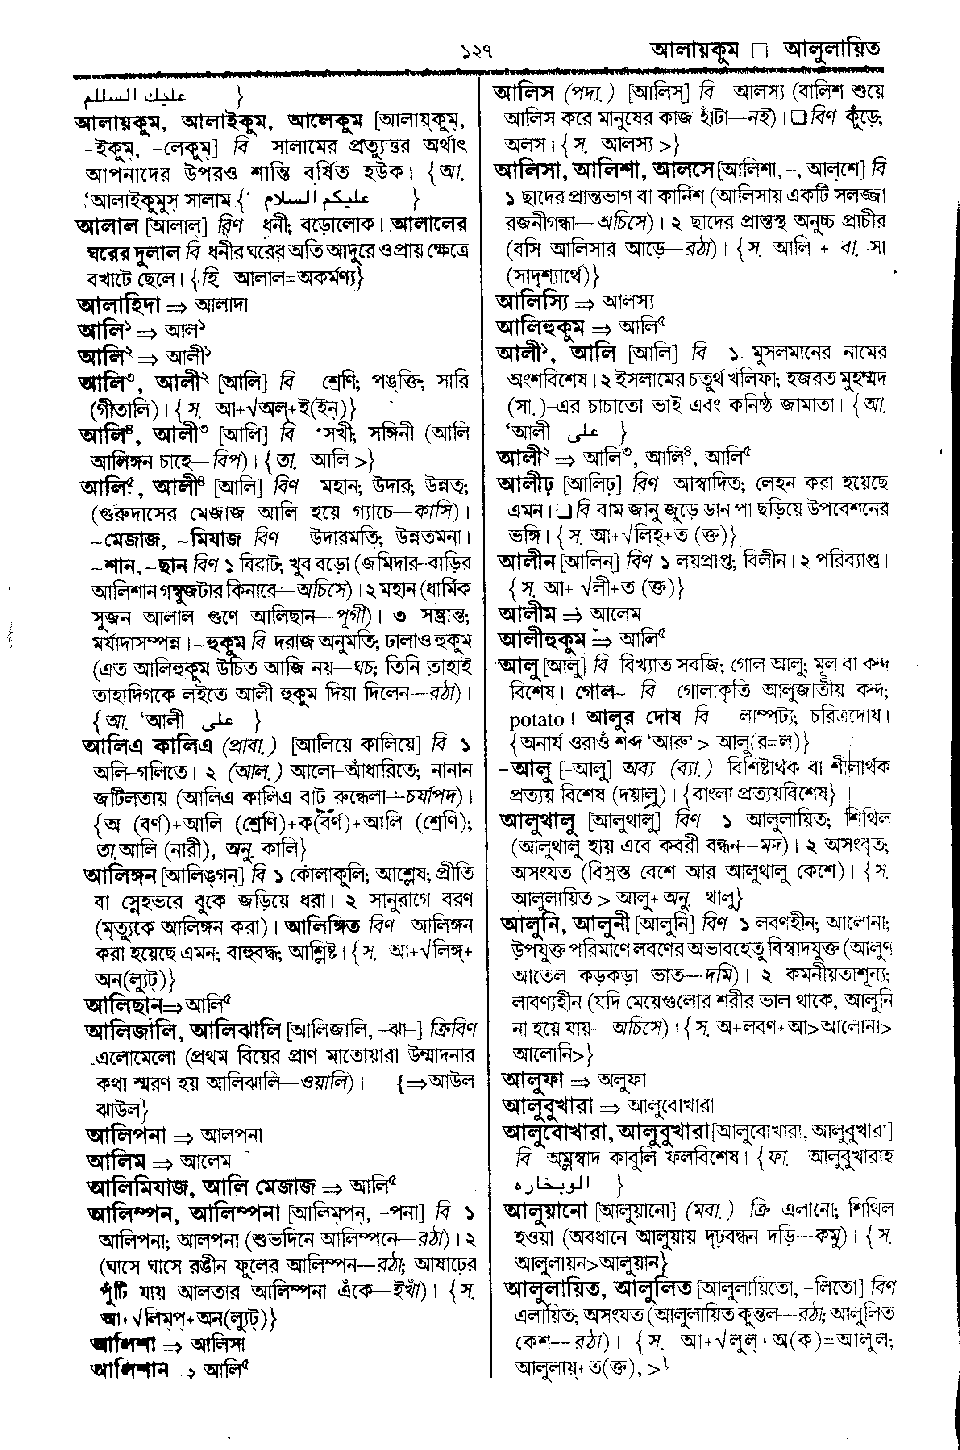 ১২৭
আলায়কুম □ আলুলায়িত
عليك السللم }
আলায়কুম, আলাইকুম, আলেকুম [আলায়্‌কুম্‌,
-ইকুম্‌, -লেকুম্‌] বি সালামের প্রত্যুত্তর অর্থাৎ
আপনাদের উপরও শান্তি বর্ষিত হউক। {আ.
‘আলাইকুমুস সালাম {‘ عليكم السلام }
আলাল [আলাল্‌] বিণ ধনী; বড়োলোক। আলালের
ঘরের দুলাল বি ধনীর ঘরের অতি আদুরে ও প্রায় ক্ষেত্রে
বখাটে ছেলে। {হি আলাল=অকর্মণ্য}
আলাহিদা ⇒ আলাদা
আলি১ ⇒ আল১
আলি২ ⇒ আলী১
আলি৩, আলী২ [আলি] বি শ্রেণি; পঙ্‌ক্তি; সারি
(গীতালি)। {স. আ+√অল্‌+ই(ইন্‌)}
আলি৪, আলী৩ [আলি] বি সখী; সঙ্গিনী (আলি
আলিঙ্গন চাহে—বিপ)। {তা. আলি >}
আলি৫, আলী৪ [আলি] বিণ মহান; উদার; উন্নত;
(গুরুদাসের মেজাজ আলি হয়ে গ্যাচে—কাসি)।
~মেজাজ, ~মিযাজ বিণ উদারমতি; উন্নতমনা।
~শান, ~ছান বিণ ১ বিরাট; খুব বড়ো (জমিদার-বাড়ির
আলিশান গম্বুজটার কিনারে—অচিসে)। ২ মহান (ধার্মিক
সুজন আলাল গুণে আলিছান—পূগী)। ৩ সম্ভ্রান্ত;
মর্যাদাসম্পন্ন। -হুকুম বি দরাজ অনুমতি; ঢালাও হুকুম
(এত আলিহুকুম উচিত আজি নয়—ঘচ; তিনি তাহাই
তাহাদিগকে লইতে আলী হুকুম দিয়া দিলেন—রঠা)।
{আ. ‘আলী على }
আলিএ কালিএ (প্রাবা.) [আলিয়ে কালিয়ে] বি ১
অলি-গলিতে। ২ (আল.) আলো-আঁধারিতে; নানান
জটিলতায় (আলিএ কালিএ বাট রুন্ধেলা—চর্যাপদ)।
{অ (বর্ণ)+আলি (শ্রেণি)+ক(বর্ণ)+আলি (শ্রেণি);
তা. আলি (নারী), অনু. কালি}
আলিঙ্গন [আলিঙ্‌গন্‌] বি ১ কোলাকুলি; আশ্লেষ; প্রীতি
বা স্নেহভরে বুকে জড়িয়ে ধরা। ২ সানুরাগে বরণ
(মৃত্যুকে আলিঙ্গন করা)। আলিঙ্গিত বিণ আলিঙ্গন
করা হয়েছে এমন; বাহুবদ্ধ; আশ্লিষ্ট। {স. আ+√লিঙ্গ্‌+
অন(ল্যুট)}
আলিছান⇒আলি৫
আলিজালি, আলিঝালি [আলিজালি, -ঝা-] ক্রিবিণ
এলোমেলো (প্রথম বিয়ের প্রাণ মাতোয়ারা উন্মাদনার
কথা স্মরণ হয় আলিঝালি—ওয়ালি)। {⇒আউল
ঝাউল}
আলিপনা ⇒ আলপনা
আলিম ⇒ আলেম
আলিমিযাজ, আলি মেজাজ ⇒ আলি৫
আলিম্পন, আলিম্পনা [আলিম্‌পন্‌, -পনা] বি ১
আলিপনা; আলপনা (শুভদিনে আলিম্পনে—রঠা)। ২
(ঘাসে ঘাসে রঙীন ফুলের আলিম্পন—রঠা; আষাঢ়ের
পুঁটি যায় আলতার আলিম্পনা এঁকে—ইখাঁ)। {স.
আ+√লিম্প্‌+অন(ল্যুট)}
আলিশা ⇒ আলিসা
আলিশান ⇒ আলি৫
আলিস (পদ্য.) [আলিস্‌] বি আলস্য (বালিশ শুয়ে
আলিস করে মানুষের কাজ হাঁটা—নই)। □ বিণ কুঁড়ে;
অলস। {স. আলস্য >}
আলিসা, আলিশা, আলসে [আলিশা,-, আল্‌শে] বি
১ ছাদের প্রান্তভাগ বা কার্নিশ (আলিসায় একটি সলজ্জা
রজনীগন্ধা—অচিসে)। ২ ছাদের প্রান্তস্থ অনুচ্চ প্রাচীর
(বসি আলিসার আড়ে—রঠা)। {স. আলি + বা. সা
(সাদৃশ্যার্থে)}
আলিস্যি ⇒ আলস্য
আলিহুকুম ⇒ আলি৫
আলী১, আলি [আলি] বি ১. মুসলমানের নামের
অংশবিশেষ। ২ ইসলামের চতুর্থ খলিফা; হজরত মুহম্মদ
(সা.)-এর চাচাতো ভাই এবং কনিষ্ঠ জামাতা। {আ.
‘আলী على }
আলী২ ⇒ আলি৩, আলি৪, আলি৫
আলীঢ় [আলিঢ়্‌] বিণ আস্বাদিত; লেহন করা হয়েছে
এমন। □ বি বাম জানু জুড়ে ডান পা ছড়িয়ে উপবেশনের
ভঙ্গি। {স. আ+√লিহ্‌+ত (ক্ত)}
আলীন [আলিন্‌] বিণ ১ লয়প্রাপ্ত; বিলীন। ২ পরিব্যাপ্ত।
{স. আ+ √লী+ত (ক্ত)}
আলীম ⇒ আলেম
আলীহুকুম ⇒ আলি৫
আলু [আলু] বি বিখ্যাত সবজি; গোল আলু; মূল বা কন্দ
বিশেষ। গোল~ বি গোলাকৃতি আলুজাতীয় কন্দ;
potato। আলুর দোষ বি লাম্পট্য; চরিত্রদোষ।
{অনার্য ওরাওঁ শব্দ ‘আরু’ > আলু(র=ল)}
-আলু [-আলু] অব্য (ব্যা.) বিশিষ্টার্থক বা শীলার্থক
প্রত্যয় বিশেষ (দয়ালু)। {বাংলা প্রত্যয়বিশেষ}
আলুথালু [আলুথালু] বিণ ১ আলুলায়িত; শিথিল
(আলুথালু হায় এবে কবরী বন্ধন—মদ)। ২ অসংবৃত;
অসংযত (বিস্রস্ত বেশে আর আলুথালু কেশে)। {স.
আলুলায়িত > আলু+ অনু. থালু}
আলুনি, আলুনী [আলুনি] বিণ ১ লবণহীন; আলোনা;
উপযুক্ত পরিমাণে লবণের অভাবহেতু বিস্বাদযুক্ত (আলুণ
আতেল কড়কড়া ভাত—দমি)। ২ কমনীয়তাশূন্য;
লাবণ্যহীন (যদি মেয়েগুলোর শরীর ভাল থাকে, আলুনি
না হয়ে যায়- অচিসে)। {স. অ+লবণ+আ>আলোনা>
আলোনি>}
আলুফা ⇒ অলুফা
আলুবুখারা ⇒ আলুবোখারা
আলুবোখারা, আলুবুখারা [আলুবোখারা, আলুবুখারা]
বি অম্লস্বাদ কাবুলি ফলবিশেষ। {ফা. আলুবুখারাহ
الوبخاره }
আলুয়ানো [আলুয়ানো] (মবা.) ক্রি এলানো; শিথিল
হওয়া (অবধানে আলুয়ায় দৃঢ়বন্ধন দড়ি—কমু)। {স.
আলুলায়ন>আলুয়ান}
আলুলায়িত, আলুলিত [আলুলায়িতো, -লিতো] বিণ
এলায়িত; অসংযত (আলুলায়িত কুন্তল—রঠা; আলুলিত
কেশ--রঠা)। {স. আ+√লুল্‌+অ(ক)=আলুল;
আলুলায়্‌+ত(ক্ত), >}